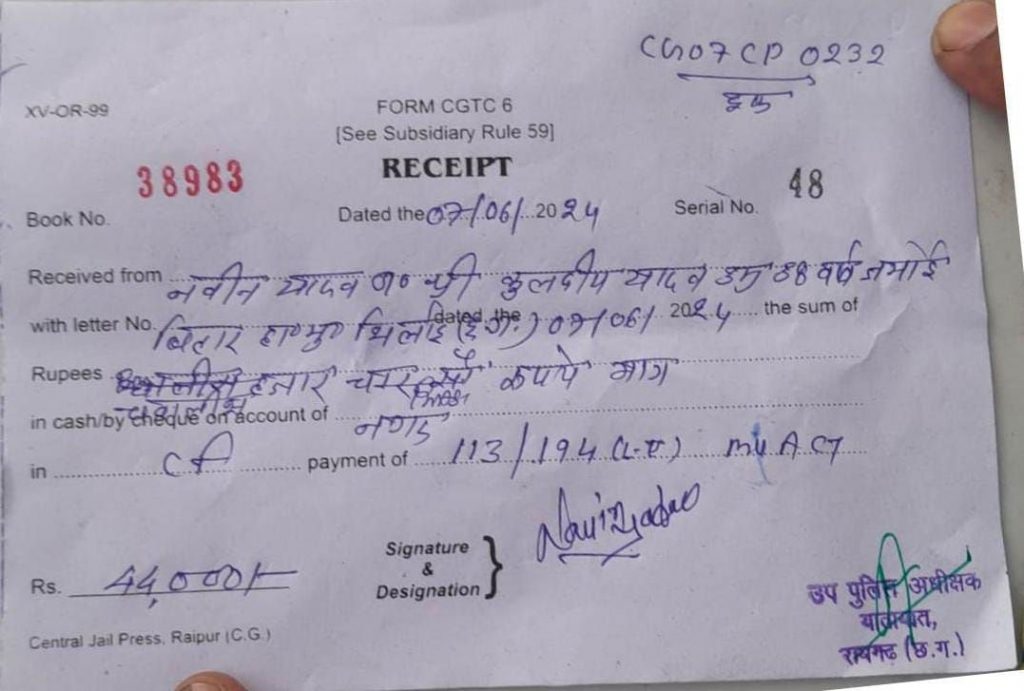 CG07CP 0232
ट्रक
XV-OR-99
FORM CGTC 6
[See Subsidiary Rule 59]
RECEIPT
Book No. 38983 Dated the 07/06/ 2024 Serial No. 48
Received from नवीन यादव श्री कुलदीप यादव उम्र 38 वर्ष
with letter No. भिलाई (छ.ग.) dated the 07/06/ 2024 the sum of
Rupees हजार रूपये मात्र
in cash/by cheque on account of नगद
in payment of 113/194 (1-ए) mv ACT
Signature
&
Designation
Navin Yadav
Rs. 44,000/-
उप पुलिस अधीक्षक
यातायात,
रायगढ़ (छ.ग.)
Central Jail Press, Raipur (C.G.)